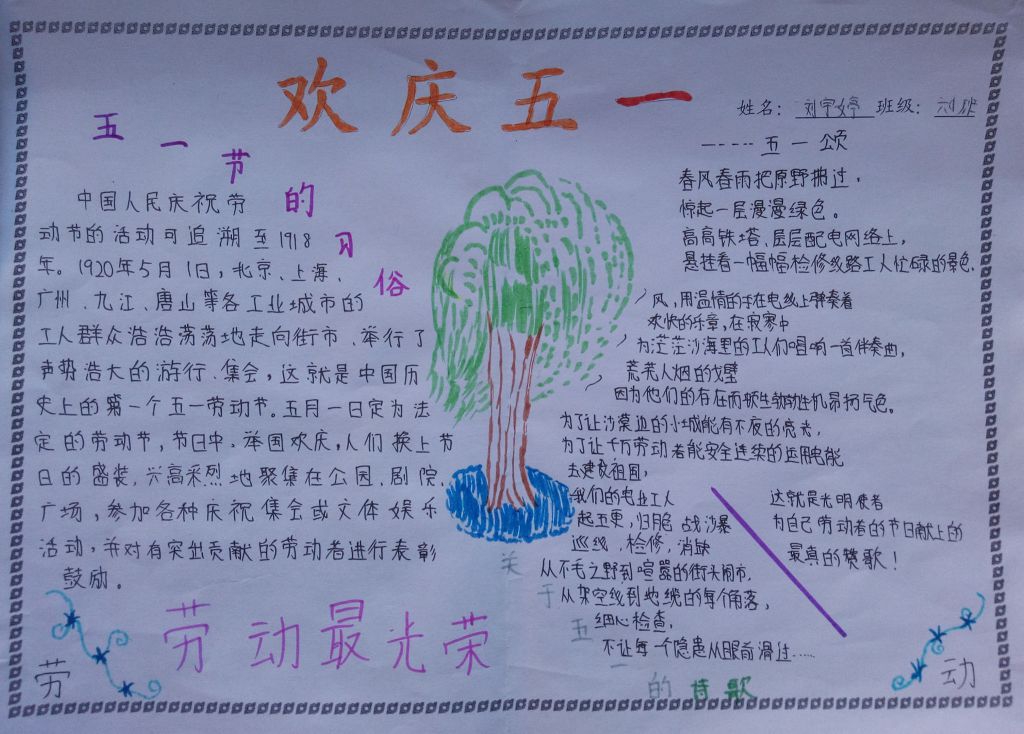 欢庆五一
姓名：刘宇婷 班级：
五一节的习俗
中国人民庆祝劳
动节的活动可追溯至1918
年。1920年5月1日，北京、上海、
广州、九江、唐山等各工业城市的
工人群众浩浩荡荡地走向街市、举行了
声势浩大的游行、集会，这就是中国历
史上的第一个五一劳动节。五月一日定为法
定的劳动节，节日中，举国欢庆，人们换上节
日的盛装，兴高采烈地聚集在公园、剧院、
广场，参加各种庆祝集会或文体娱乐
活动，并对有突出贡献的劳动者进行表彰
鼓励。
劳动最光荣
劳
----五一颂
春风春雨把原野拂过，
惊起一层漫漫绿色。
高高铁塔、层层配电网络上，
悬挂着一幅幅检修线路工人忙碌的景色.
风，用温情的手在电线上弹奏着
欢快的乐章，在寂寞中
为茫茫沙海里的工人们唱响一首伴奏曲，
荒芜人烟的戈壁
因为他们的存在而被生勃勃生机昂扬气色。
为了让沙漠边的小城能有不夜的亮光，
为了让千万劳动者能安全连续的运用电能
去建设祖国，
我们的电业工人
起五更，归月陷 战沙暴
巡线，检修，消缺
从不毛之野到喧嚣的街头闹市，
从架空线到地缆的每个角落，
细心检查，
不让每个隐患从眼前滑过……
这就是光明使者
为自己劳动者的节日献上的
最真的赞歌！
关于五一的诗歌
动